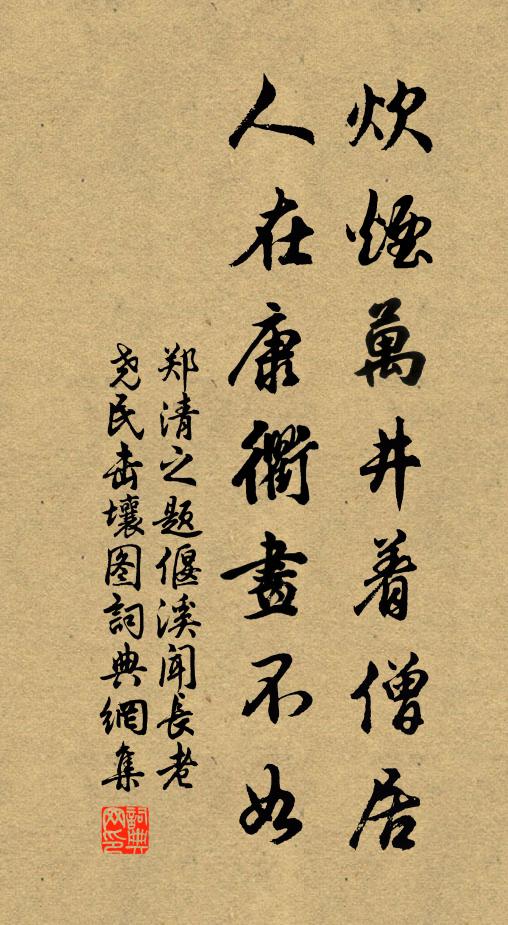 炊煙萬井着僧居
人在康衢畫不如
郑清之题偃溪闻長老
尧民击壤图詞典網集
詞典网印